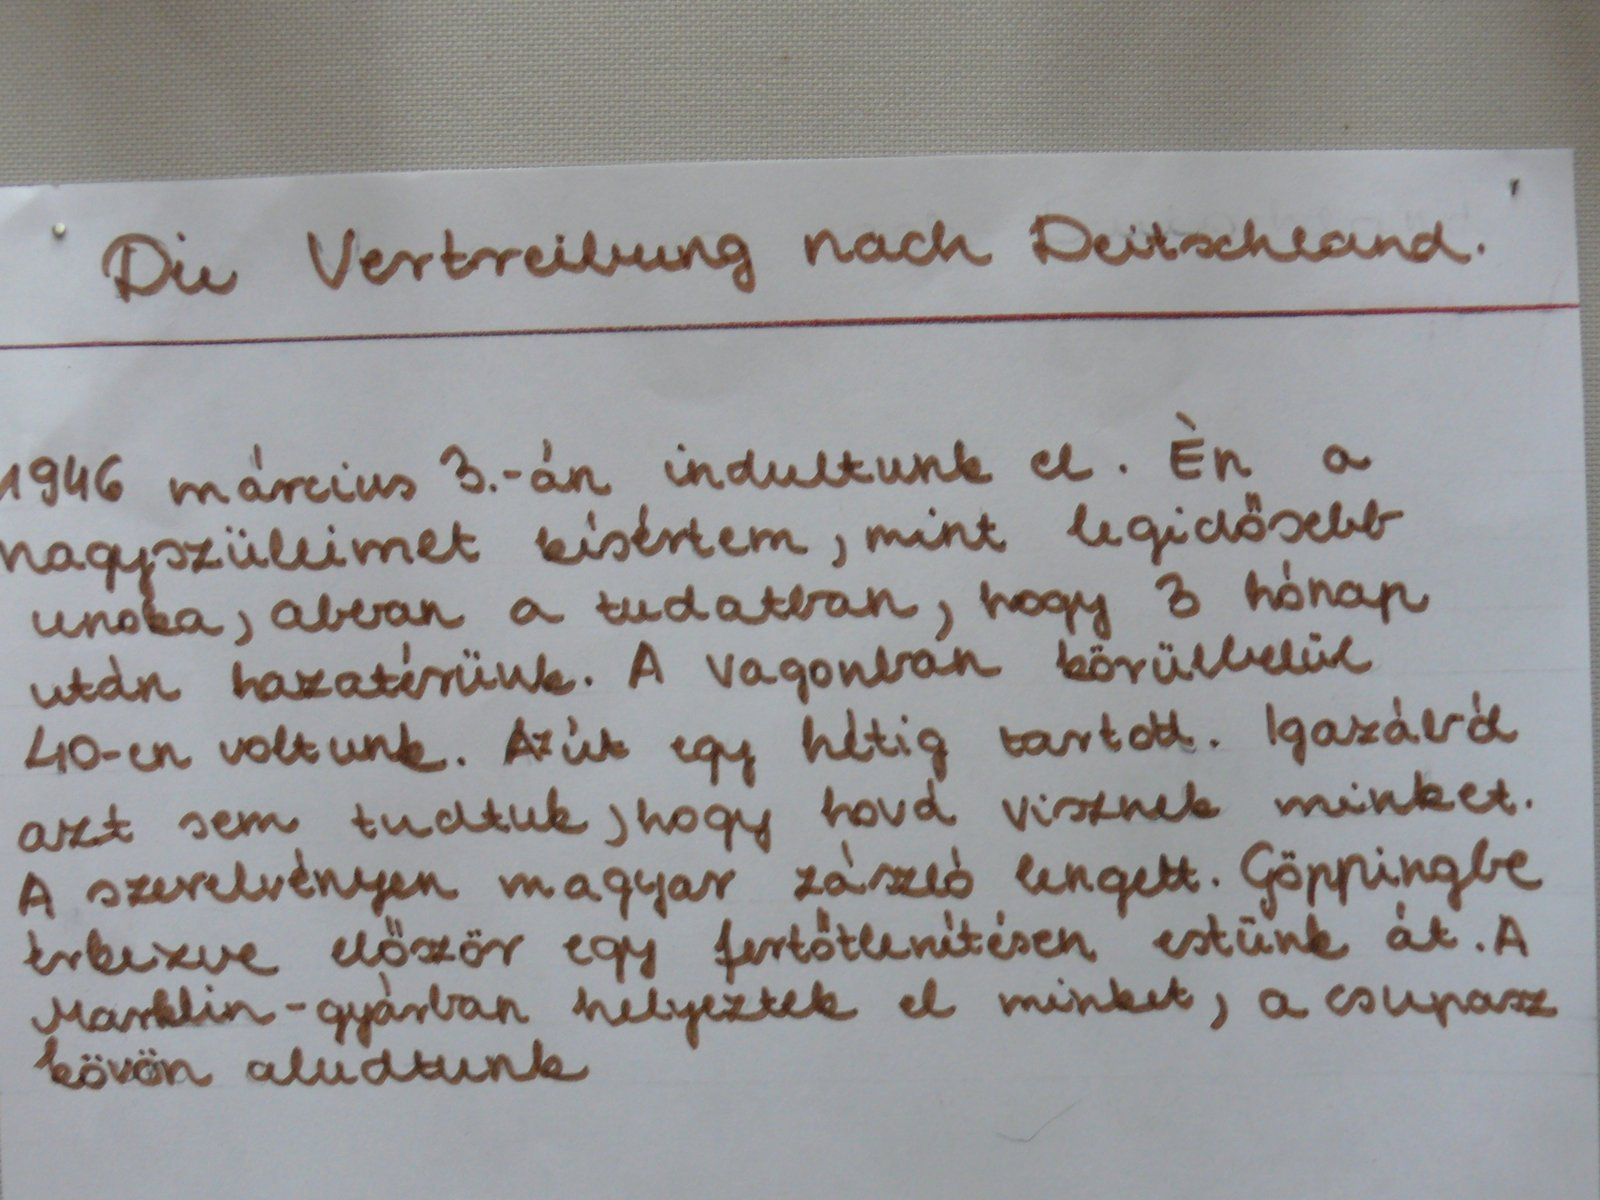 Die Vertreibung nach Deitschland.
1946 március 3.-án indultunk el. Èn a
nagyszüleimet kísértem, mint legidősebb
unoka, abban a tudatban, hogy 3 hónap
után hazatérünk. A vagonban körülbelül
40-en voltunk. Azút egy hétig tartott. Igazából
azt sem tudtuk, hogy hová visznek minket.
A szerelvényen magyar zászló lengett. Göppingbe
érkezve először egy fertőtlenítésen estünk át. A
Marklin-gyárban helyeztek el minket, a csupasz
kövön aludtunk